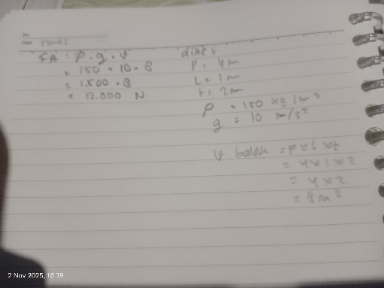 FA = ρ . g . v
= 150 . 10 . 8
= 1.500 . 8
= 12.000 N
diket :
P = 4 m
L = 1 m
t = 2 m
ρ = 150 kg/m³
g = 10 m/s²
V balok = p x l x t
= 4 x 1 x 2
= 4 x 2
= 8 m³
2 Nov 2025, 16:39